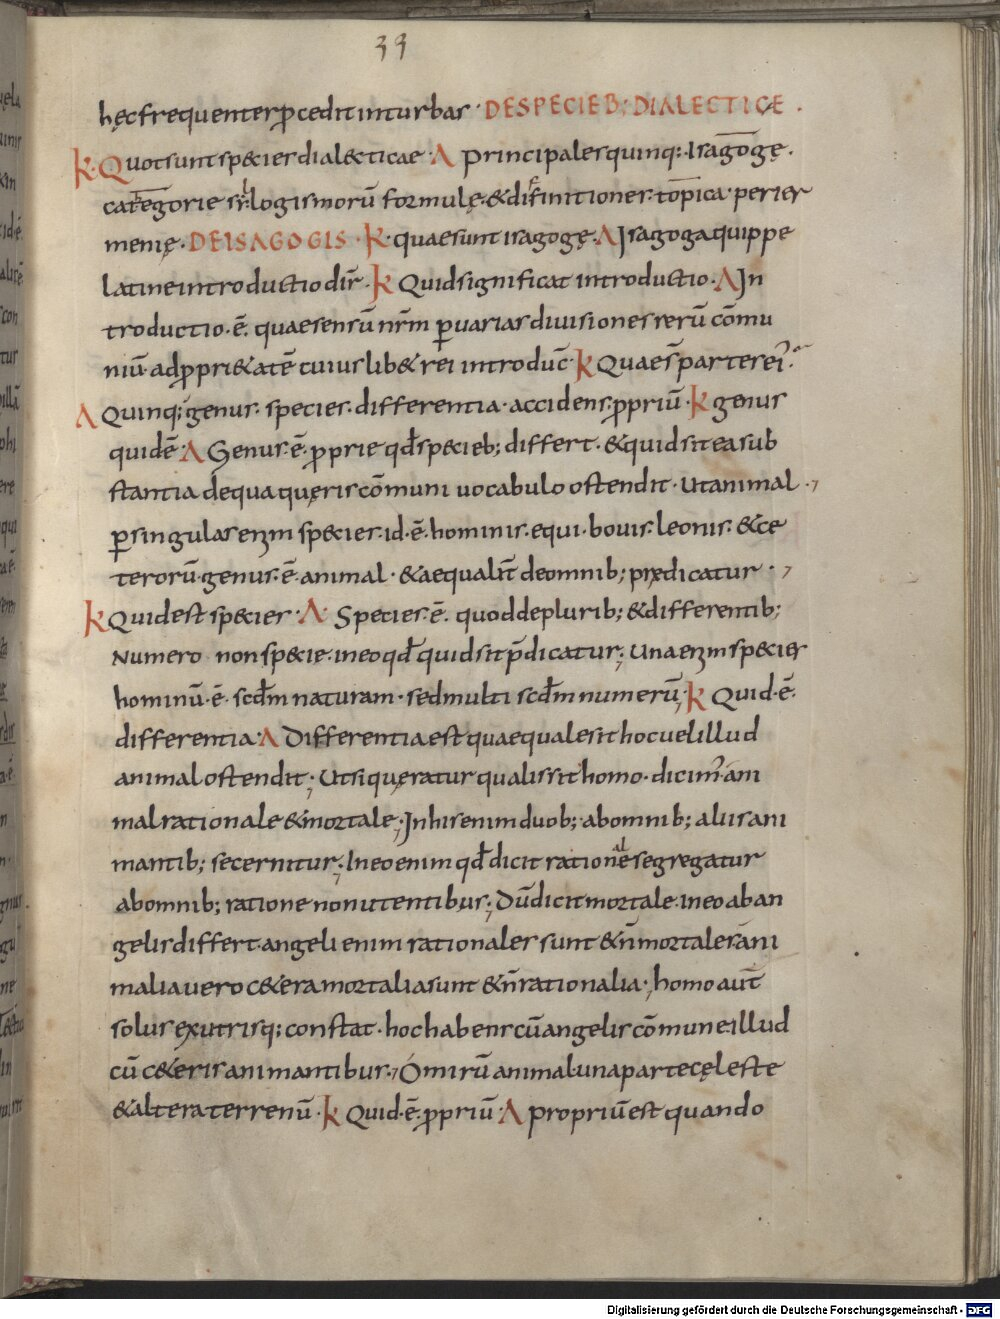 33
hęc frequenter p̄cedit inturbas · DESPECIEB; DIALECTICE .
K · Quot sunt species dialecticae · Λ principales quinq; · Isagōgę .
categorie syllogismorū formulę · & diffinitiones · topica · perier
menię . DEISAGOGIS · K · quae sunt isagogę · Λ Isagoga quippe
latine introductio dir̄ · K Quid significat introductio · Λ In
troductio · ē · quae sensū nr̄m ꝑ uarias diuisiones rerū cōmu
niū · ad ꝓpri&atē cuius lib& rei introduc̄ · K Quae s̄ partes ei'
Λ Quinq; genus · species · differentia · accidens ꝓpriū · K genus
quid ē Λ Genus · ē · ꝓprie qd̄ specieb; differt · & quid sit ea sub
stantia de qua quęris cōmuni uocabulo ostendit · Ut animal ·,
ꝑ singulas enim species · id · ē · hominis · equi · bouis · leonis · & ce
terorū · genus · ē · animal · & aequalit̄ de omnib; prędicatur · ,
K Quid est species · Λ · Species · ē · quod de plurib; & differentib;
Numero non specie · in eo qd̄ quid sit p̄dicatur; Una enim species
hominū · ē · scd̄m naturam · sed multi scd̄m numerū; K Quid · ē ·
differentia · Λ Differentia est quae quale sit hoc uel illud
animal ostendit; Ut si quęratur qualis sit homo · dicim' · ani
mal rationale & mortale; In his enim duob; ab omnib; aliis ani
mantib; secernitur; In eo enim qd̄ dicit rationale segregatur
ab omnib; ratione non utentibus; Dū dicit mortale · In eo ab an
gelis differt · angeli enim rationales sunt & n̄ mortales · ani
malia uero c&era mortalia sunt & n̄ rationalia ·, homo aut̄
solus ex utrisq; constat · hoc habens cū angelis cōmune illud
cū c&eris animantibus ·, O mirū animal una parte cęleste
& altera terrenū · K Quid · ē · ꝓpriū · Λ propriū est quando
Digitalisierung gefördert durch die Deutsche Forschungsgemeinschaft - DFG